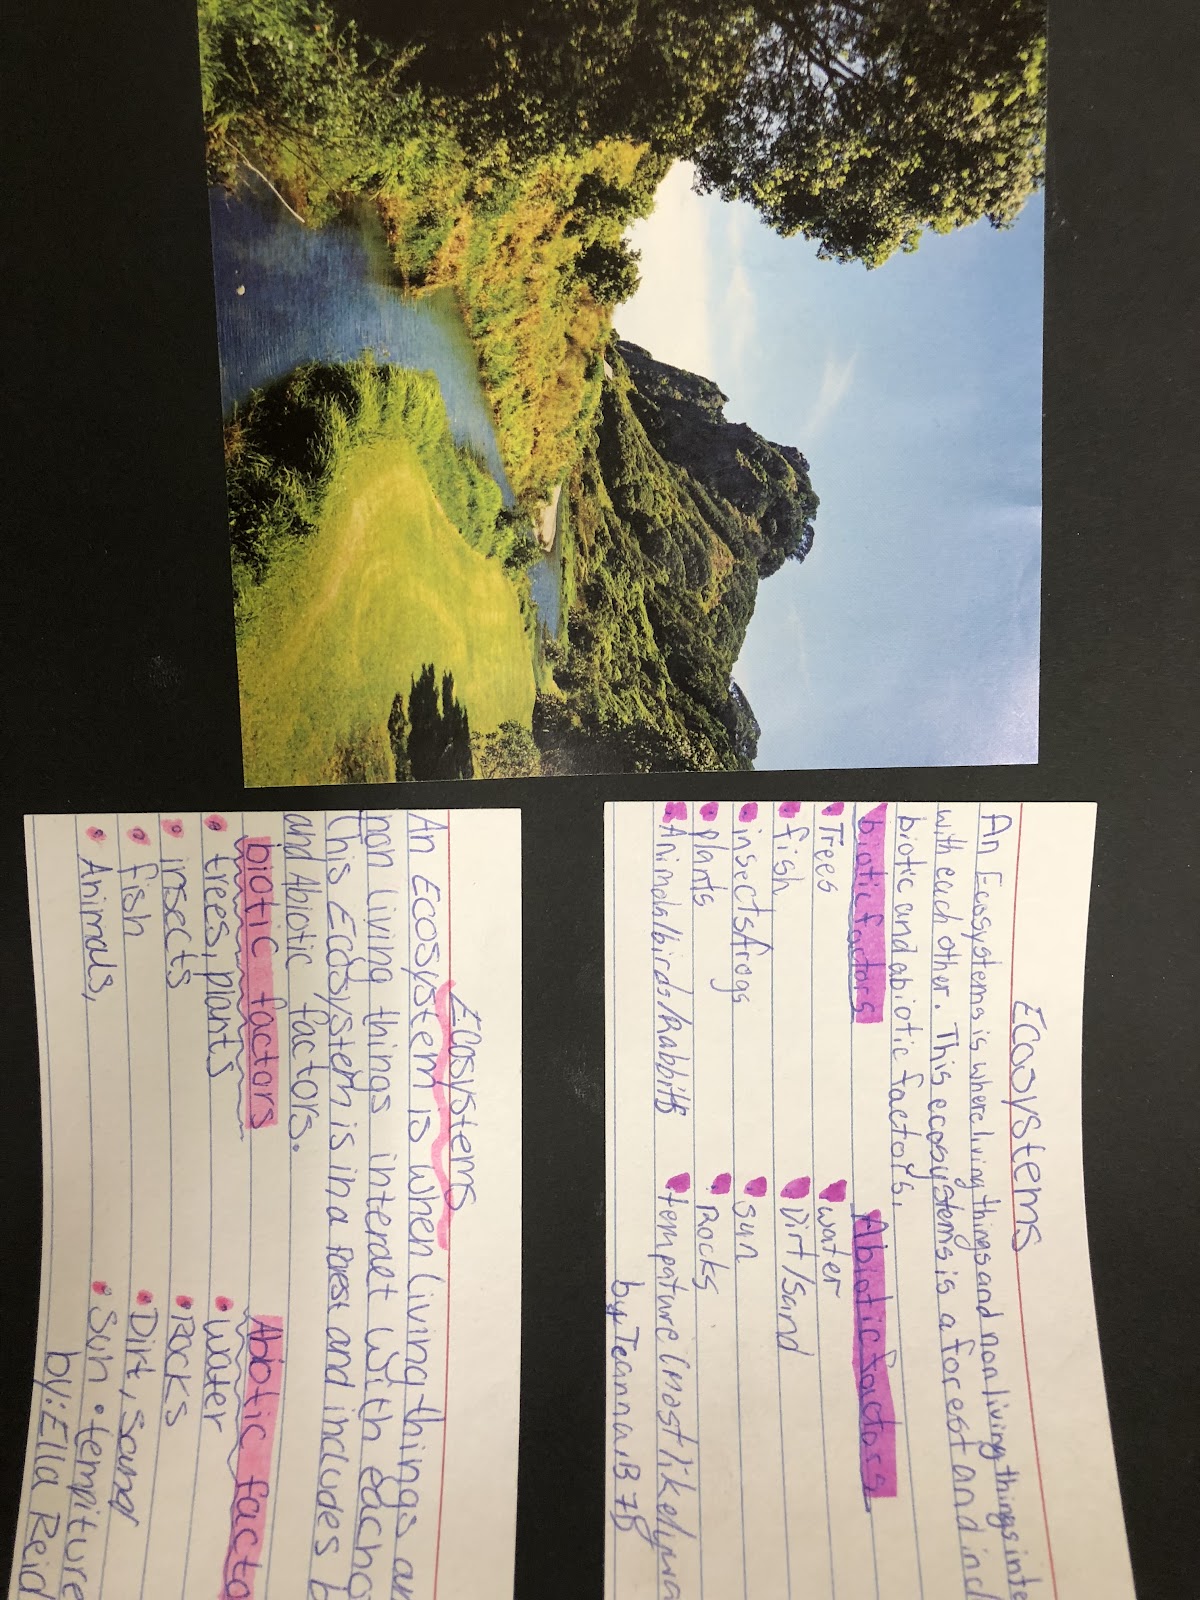 Ecosystems
An Ecosystems is where living things and non living things inte
with each other. This ecosystems is a forest and incl
biotic and abiotic factors.
biotic factors Abiotic factors
Trees water
fish Dirt/sand
insects/frogs sun
plants Rocks
Animals/birds/Rabbits tempature (most likely wa
by Teanna B 7B
Ecosystems
An Ecosystem is when living things an
non living things interact with eacho
This Ecosystem is in a Forest and includes b
and Abiotic factors.
biotic factors Abiotic facto
trees, plants water
insects Rocks
fish Dirt, Sand
Animals, Sun tempiture
by: Ella Reid